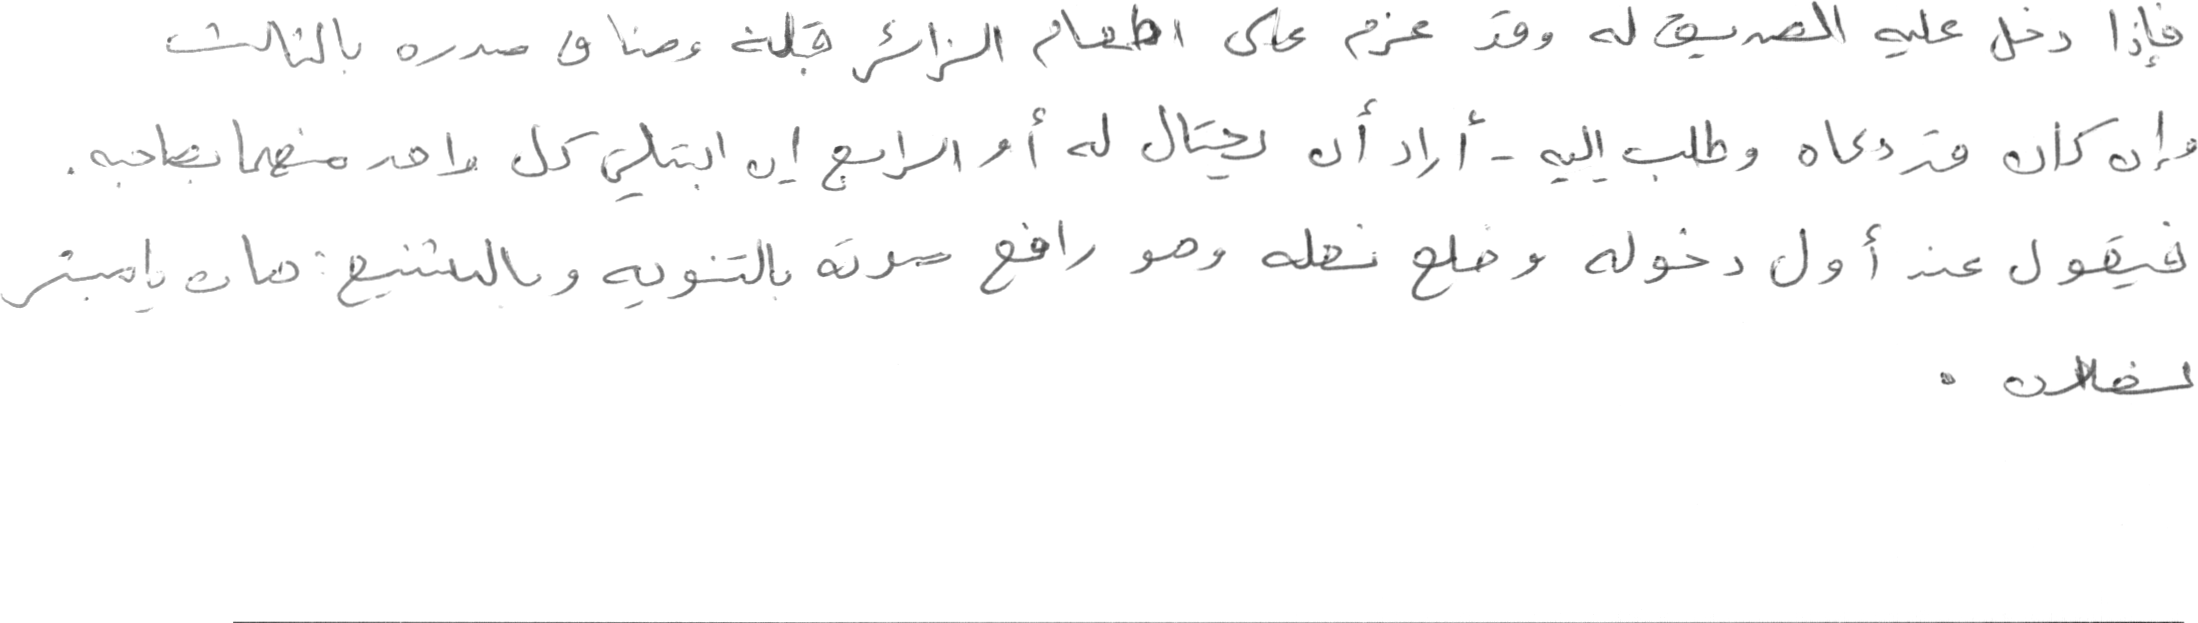 فإذا دخل عليه الصديق له وقد عزم على اطعام الزائر قبله وضاق صدره بالثالث
وإن كان قد دعاه وطلب إليه - أراد أن يحتال له أو الرابع إن ابتلي كل واحد منهما بصاحبه .
فيقول عند أول دخوله وخلع نعله وهو رافع صوته بالتنويه وبالتشنيع : هات يا مبشر
لفلان .